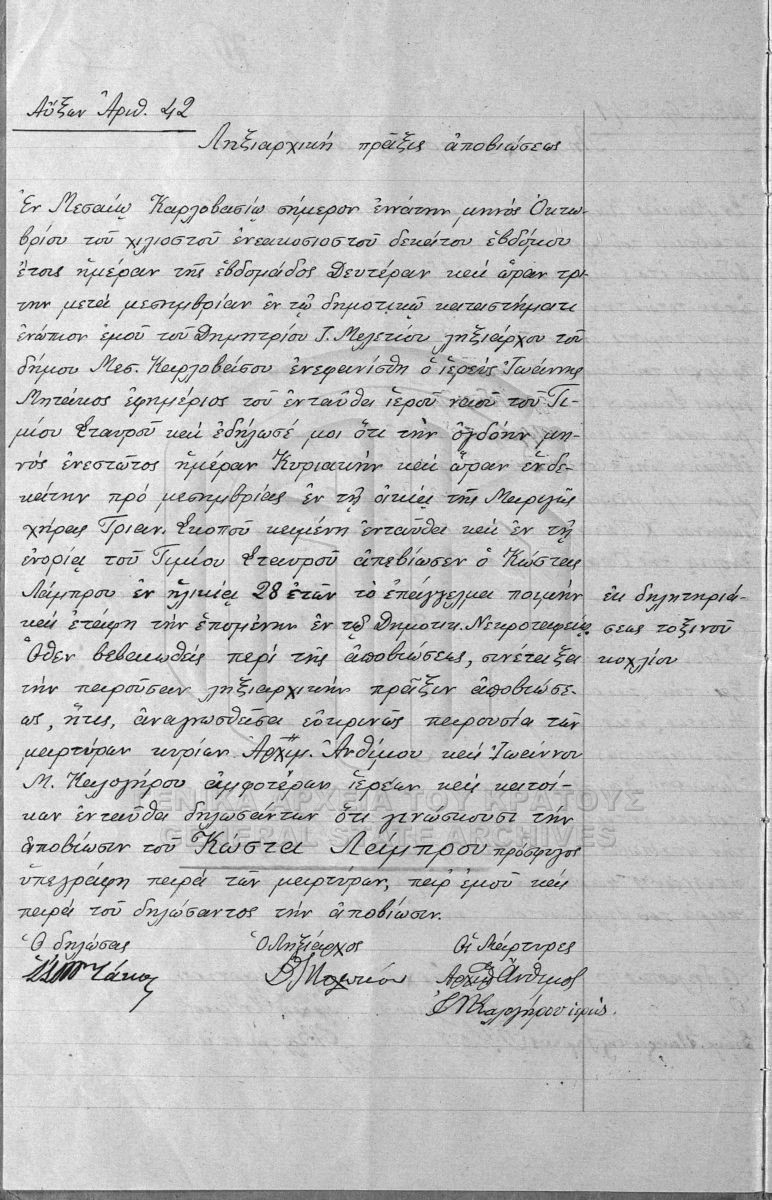 Αὔξων Ἀριθ. 42
Ληξιαρχική πρᾶξις ἀποβιώσεως
Ἐν Μεσαίῳ Καρλοβασίῳ σήμερον ἐννάτην μηνός Ὀκτω-
βρίου τοῦ χιλιοστοῦ ἐνεακοσιοστοῦ δεκάτου ἑβδόμου
ἔτους ἡμέραν τῆς ἑβδομάδος Δευτέραν καί ὥραν τρί-
την μετά μεσημβρίαν ἐν τῷ δημοτικῷ καταστήματι
ἐνώπιον ἐμοῦ τοῦ Δημητρίου Ι. Μελετίου ληξιάρχου τοῦ
δήμου Μεσ. Καρλοβάσου ἐνεφανίσθη ὁ ἱερεύς Ἰωάννης
Μητάκος ἐφημέριος τοῦ ἐνταῦθα ἱεροῦ ναοῦ τοῦ Τι-
μίου Σταυροῦ καί ἐδήλωσέ μοι ὅτι τήν ὀγδόην μη-
νός ἐνεστῶτος ἡμέραν Κυριακήν καί ὥραν ἑνδε-
κάτην πρό μεσημβρίας ἐν τῇ οἰκίᾳ τῆς Μαριγῶς
χήρας Τριαν. Σκοποῦ κειμένῃ ἐνταῦθα καί ἐν τῇ
ἐνορίᾳ τοῦ Τιμίου Σταυροῦ ἀπεβίωσεν ὁ Κώστας
Λάμπρου ἐν ἡλικίᾳ 28 ἐτῶν τό ἐπάγγελμα ποιμήν
καί ἐτάφη τήν ἑπομένην ἐν τῷ Δημοτικ. Νεκροταφείῳ.
ἐκ δηλητηριά-
σεως τοξινοῦ
κοχλίου
Ὅθεν βεβαιωθείς περί τῆς ἀποβιώσεως, συνέταξα
τήν παροῦσαν ληξιαρχικήν πρᾶξιν ἀποβιώσε-
ως, ἥτις, ἀναγνωσθεῖσα εὐκρινῶς παρουσίᾳ τῶν
μαρτύρων κυρίων Ἀρχιμ. Ἀνθίμου καί Ἰωάννου
Μ. Καλογήρου ἀμφοτέρων ἱερέων καί κατοί-
κων ἐνταῦθα δηλωσάντων ὅτι γινώσκουσι τήν
ἀποβίωσιν τοῦ Κώστα Λάμπρου πρόσφυγος
ὑπεγράφη παρά τῶν μαρτύρων, παρ' ἐμοῦ καί
παρά τοῦ δηλώσαντος τήν ἀποβίωσιν.
Ὁ δηλώσας Ὁ Ληξίαρχος Οἱ Μάρτυρες
Ἀρχιμ Ἄνθιμος
Καλογήρου ἱερεύς.
ΓΕΝΙΚΑ ΑΡΧΕΙΑ ΤΟΥ ΚΡΑΤΟΥΣ
GENERAL STATE ARCHIVES